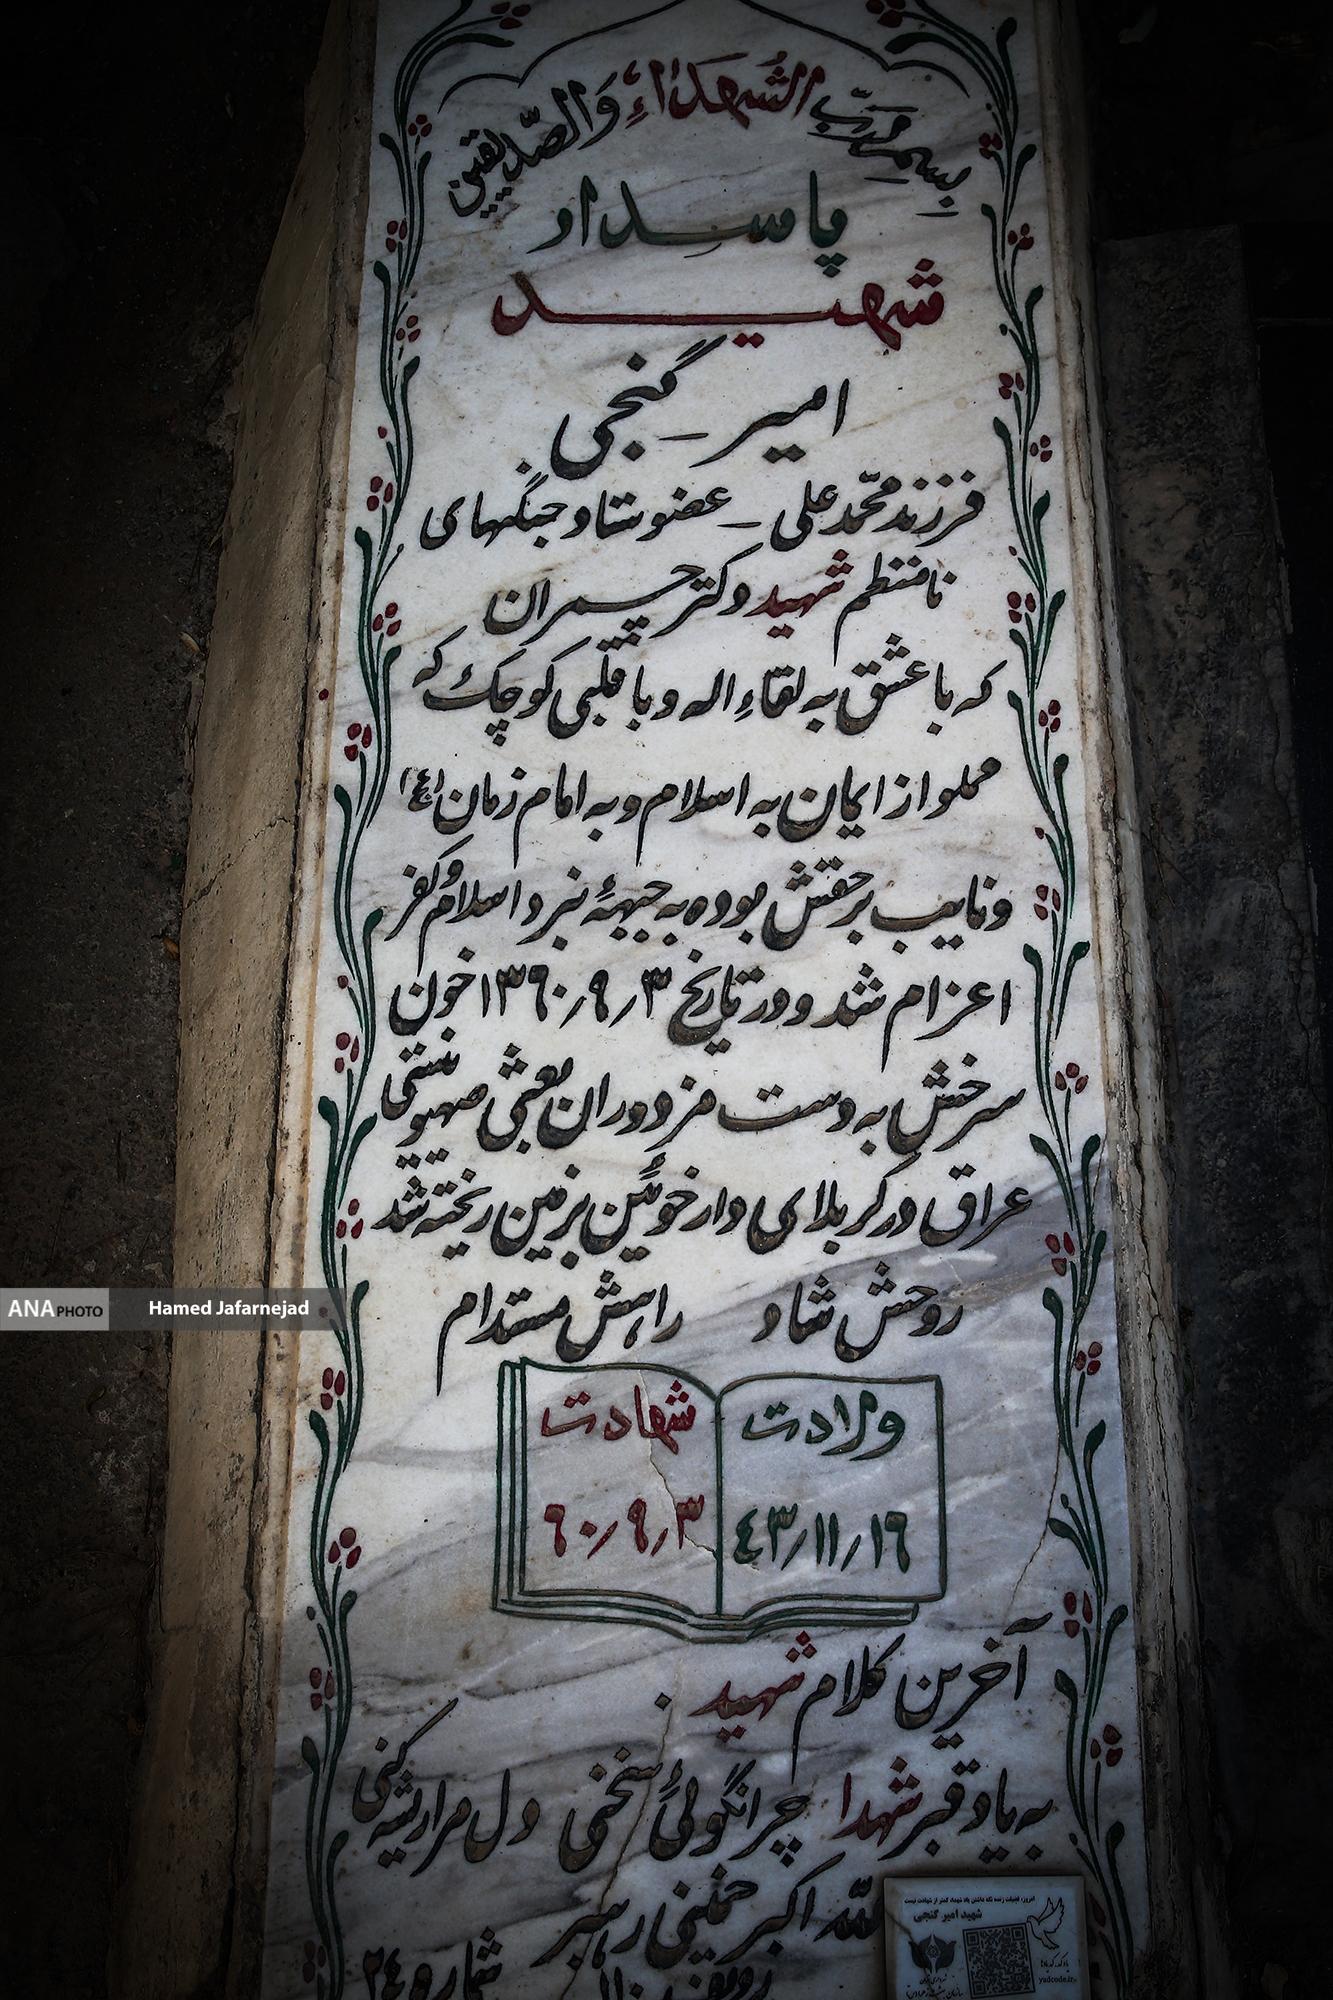 بسم رب الشهداء والصدیقین
پاسدار
شهید
امیر گنجی
فرزند محمد علی - عضو ستاد جنگهای
نامنظم شهید دکتر چمران
که با عشق به لقاءِ اله و با قلبی کوچک که
مملو از ایمان به اسلام و به امام زمان (عج)
و نایب برحقش بوده به جبههٔ نبرد اسلام و کفر
اعزام شد و در تاریخ ۱۳۶۰/۹/۳ خون
سرخش به دست مزدوران بعثی صهیونیستی
عراق در کربلای دارخوئین بر زمین ریخته شد
روحش شاد راهش مستدام
ولادت شهادت
٤۳/۱۱/۱۶ ۶۰/۹/۳
آخرین کلام شهید
به یاد قبر شهدا چرا نگوئی سخنی دل مرا ریشه کنی
الله اکبر خمینی رهبر
ردیف شماره ۲٤
امروز، فضیلت زنده نگه داشتن یاد شهدا، کمتر از شهادت نیست
شهید امیر گنجی
yadcode.ir
ANA PHOTO Hamed Jafarnejad